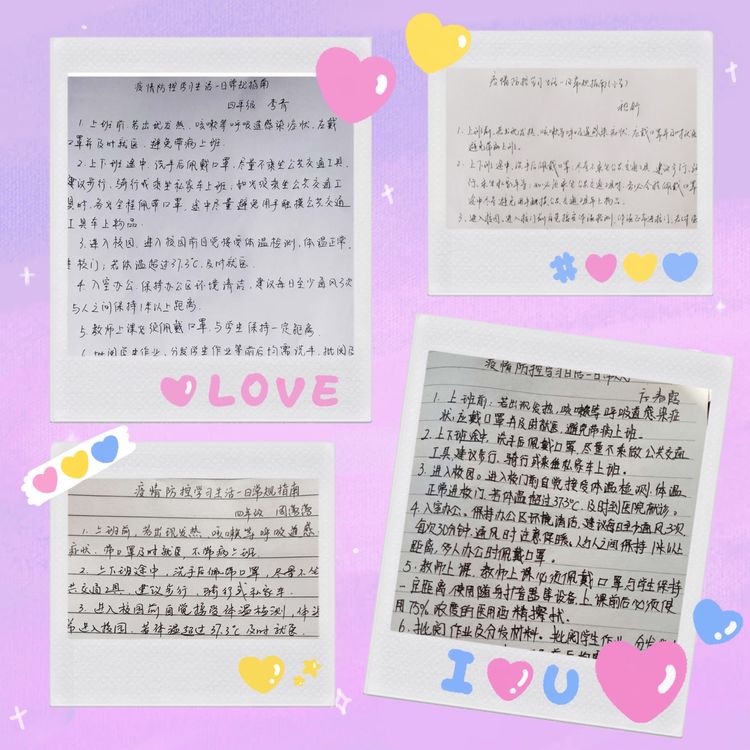 疫情防控学习生活一日常规指南
四年级 李青
1. 上班前若出现发热、咳嗽等呼吸道感染症状,应戴
口罩并及时就医,避免带病上班.
2. 上下班途中.洗手后佩戴口罩,尽量不乘坐公共交通工具,
建议步行、骑行或乘坐私家车上班;如必须乘坐公共交通工
具时,务必全程佩带口罩.途中尽量避免用手触摸公共交通
工具车上物品.
3. 进入校园.进入校园前自觉接受体温检测,体温正常
校门;若体温超过37.3℃,及时就医.
4. 入室办公.保持办公区环境清洁,建议每日至少通风3次
与人之间保持1米以上距离.
5. 教师上课必须佩戴口罩,与学生保持一定距离.
批阅学生作业,分发学生作业等前后均需洗手,批阅
LOVE
疫情防控学习生活一日常规指南
1. 上班前,若出现发热、咳嗽等呼吸道感染症状,应戴口罩并及时就医
避免带病上班.
2. 上下班途中,洗手后佩戴口罩,尽量不乘坐公共交通工具,建议步行、骑
3. 进入校园,进入校门前自觉接受体温检测,体温正常进校门,
#
疫情防控学习生活一日常规指南
四年级
1. 上班前,若出现发热、咳嗽等呼吸道感
症状,带口罩及时就医,不带病上班.
2. 上下班途中,洗手后佩带口罩,尽量不坐
共交通工具,建议步行、骑行或私家车.
3. 进入校园前自觉接受体温检测,体温
常进入校园,若体温超过37.3℃及时就医.
疫情防控学习生活一日常规
1. 上班前:若出现发热,咳嗽等呼吸道感染症
状,应戴口罩并及时就医,避免带病上班.
2. 上下班途中,洗手后佩戴口罩,尽量不乘公共交通
工具,建议步行、骑行或乘坐私家车上班.
3. 进入校园。进入校门前自觉接受体温检测.体温
正常进校门.若体温超过37.3℃,及时到医院就诊。
4. 入室办公。保持办公区环境清洁,建议每日通风3次
每次30分钟,通风时注意保暖。人与人之间保持1米以上
距离,多人办公时佩戴口罩。
5. 教师上课。教师上课必须佩戴口罩与学生保持
一定距离,使用随身扩音器等设备,上课前后必须使
用75%浓度的医用酒精擦拭.
6. 批阅作业及分发材料。批阅学生作业、分发
I U